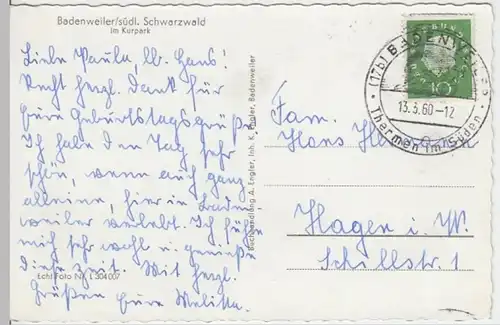 Badenweiler/südl. Schwarzwald
im Kurpark
Liebe Paula, lb. Hans!
Recht herzl. Dank für
Eure Geburtstagsgrüße
Ich habe den Tag sehr
schön, wenn auch ganz
alleine, hier in Baden
weiler verlebt. Ich fühle
mich sehr wohl u. genieße
diese Zeit. Mit herzl.
Grüßen Eure Melitta.
Echt Foto Nr. L 304007
Buchhandlung A. Engler, Inh. K. Engler, Badenweiler
(17b) BADENWEILER
13.3.60-12
Thermen im Süden
10
Fam.
Hans
Hagen i. W.
Schillstr. 1